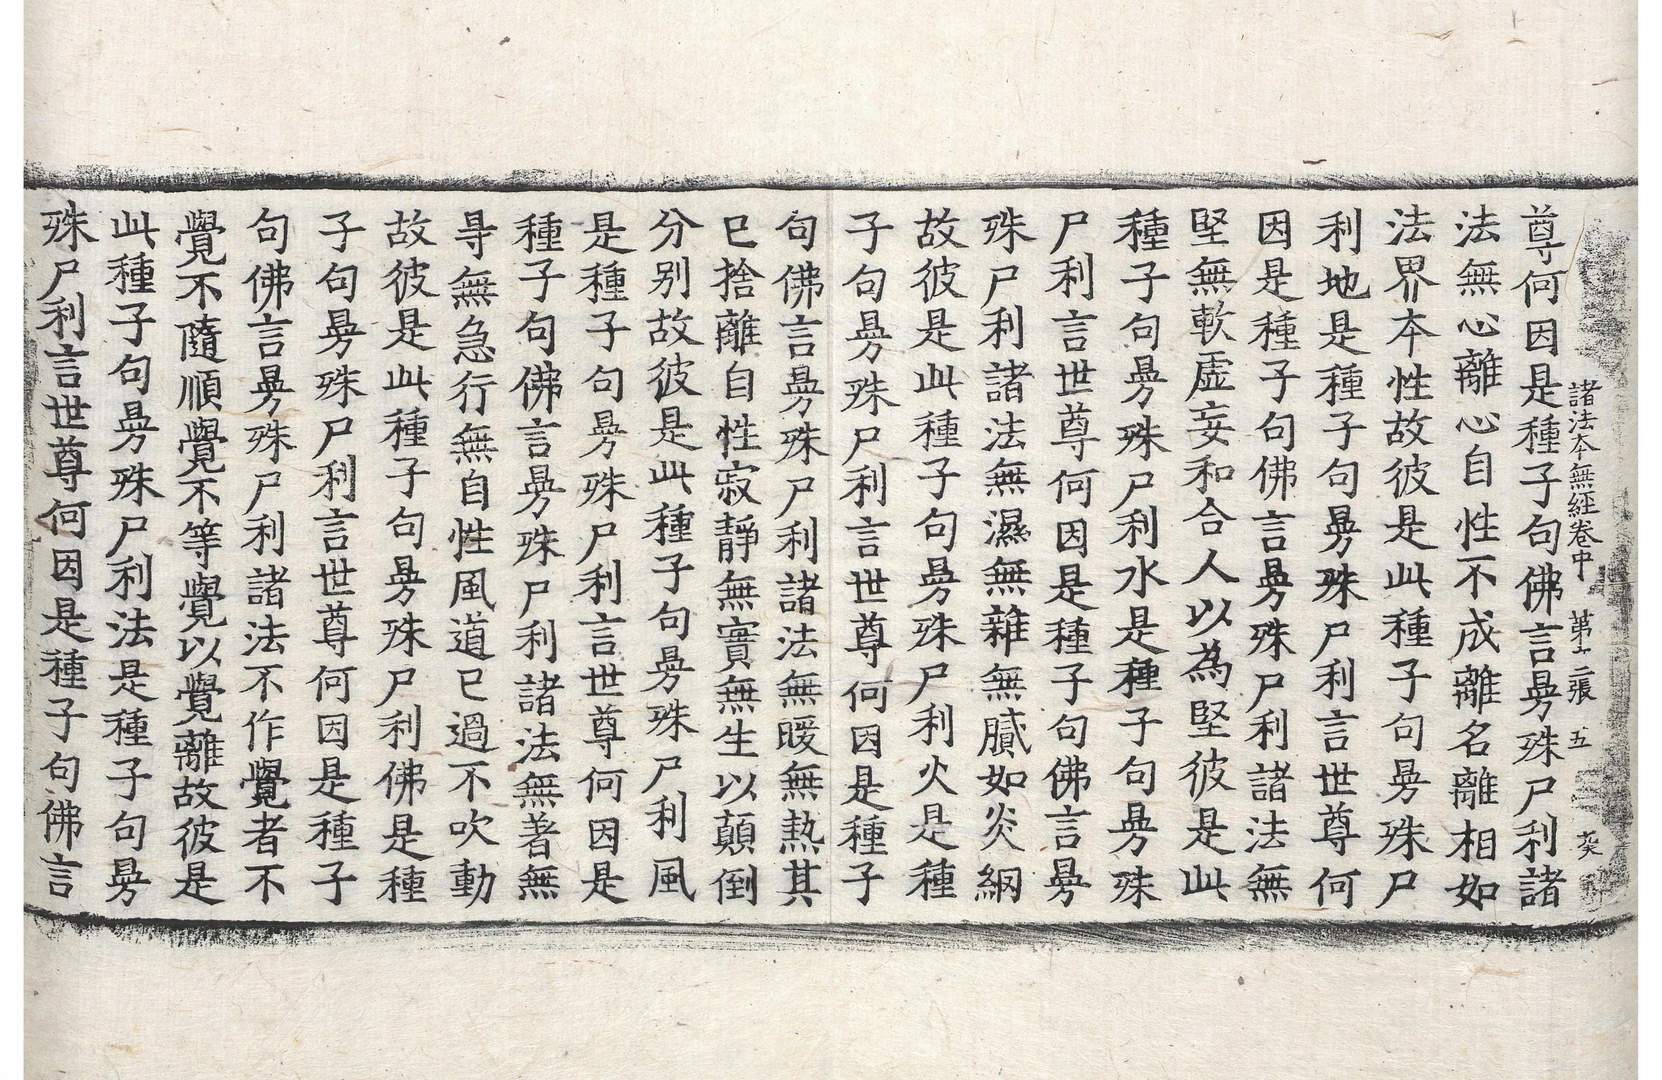 諸法本無經卷中 第十二張 五 癸
尊何因是種子句佛言曼殊尸利諸
法無心離心自性不成離名離相如
法界本性故彼是此種子句曼殊尸
利地是種子句曼殊尸利言世尊何
因是種子句佛言曼殊尸利諸法無
堅無軟虛妄和合人以為堅彼是此
種子句曼殊尸利水是種子句曼殊
尸利言世尊何因是種子句佛言曼
殊尸利諸法無濕無雜無膩如炎網
故彼是此種子句曼殊尸利火是種
子句曼殊尸利言世尊何因是種子
句佛言曼殊尸利諸法無暖無熱其
已捨離自性寂靜無實無生以顛倒
分別故彼是此種子句曼殊尸利風
是種子句曼殊尸利言世尊何因是
種子句佛言曼殊尸利諸法無著無
㝵無急行無自性風道已過不吹動
故彼是此種子句曼殊尸利佛是種
子句曼殊尸利言世尊何因是種子
句佛言曼殊尸利諸法不作覺者不
覺不隨順覺不等覺以覺離故彼是
此種子句曼殊尸利法是種子句曼
殊尸利言世尊何因是種子句佛言